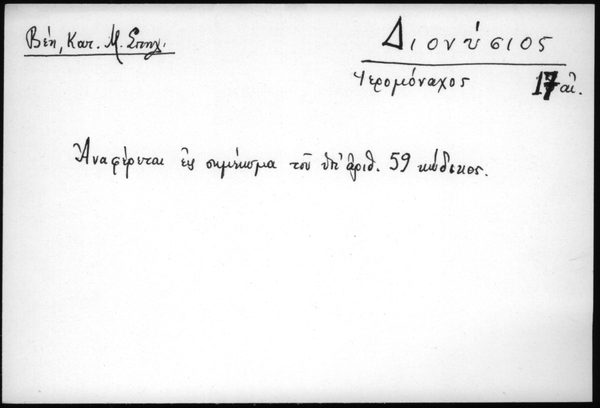 Βέη, Κατ. Μ. Σπηλ.
Διονύσιος
Ἱερομόναχος 17 αἰ.
Ἀναφέρεται εἰς σημείωμα τοῦ ὑπ' ἀριθ. 59 κώδικος.